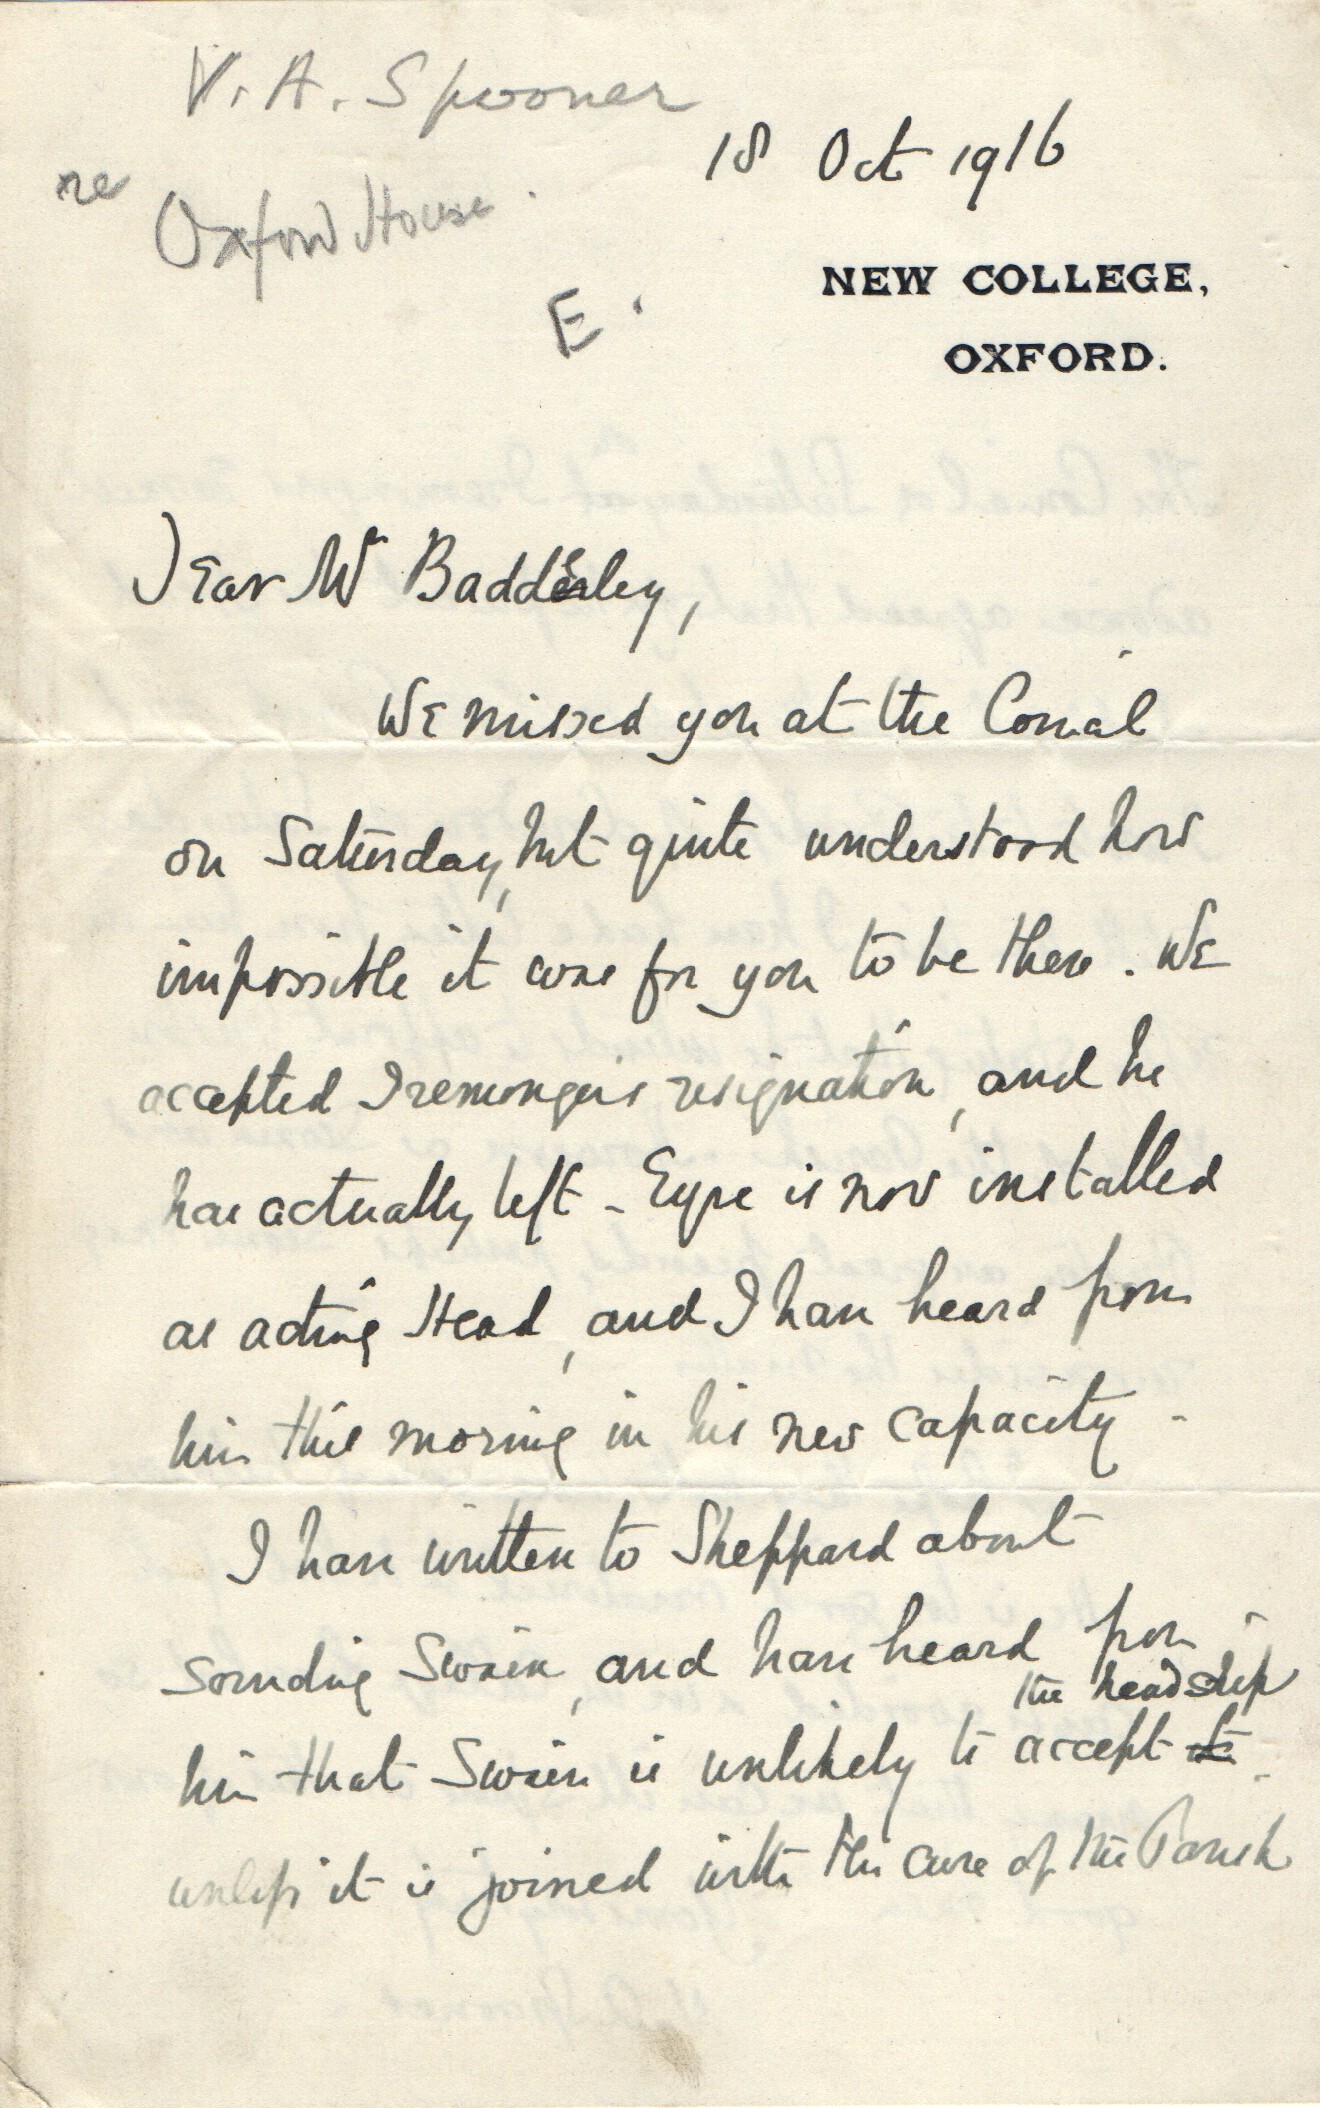 V. A. Spooner
18 Oct 1916
re
Oxford House.
E.
NEW COLLEGE,
OXFORD.
Dear Mr Baddeley,
We missed you at the
on Saturday, but quite understood how
impossible it was for you to be there. We
accepted Iremonger's resignation, and he
has actually left - Eyre is now installed
as acting Head, and I have heard from
him this morning in his new capacity -
I have written to Sheppard about
sounding Swain, and have heard from
the headship
him that Swain is unlikely to accept it
unless it is joined with the cure of the Parish